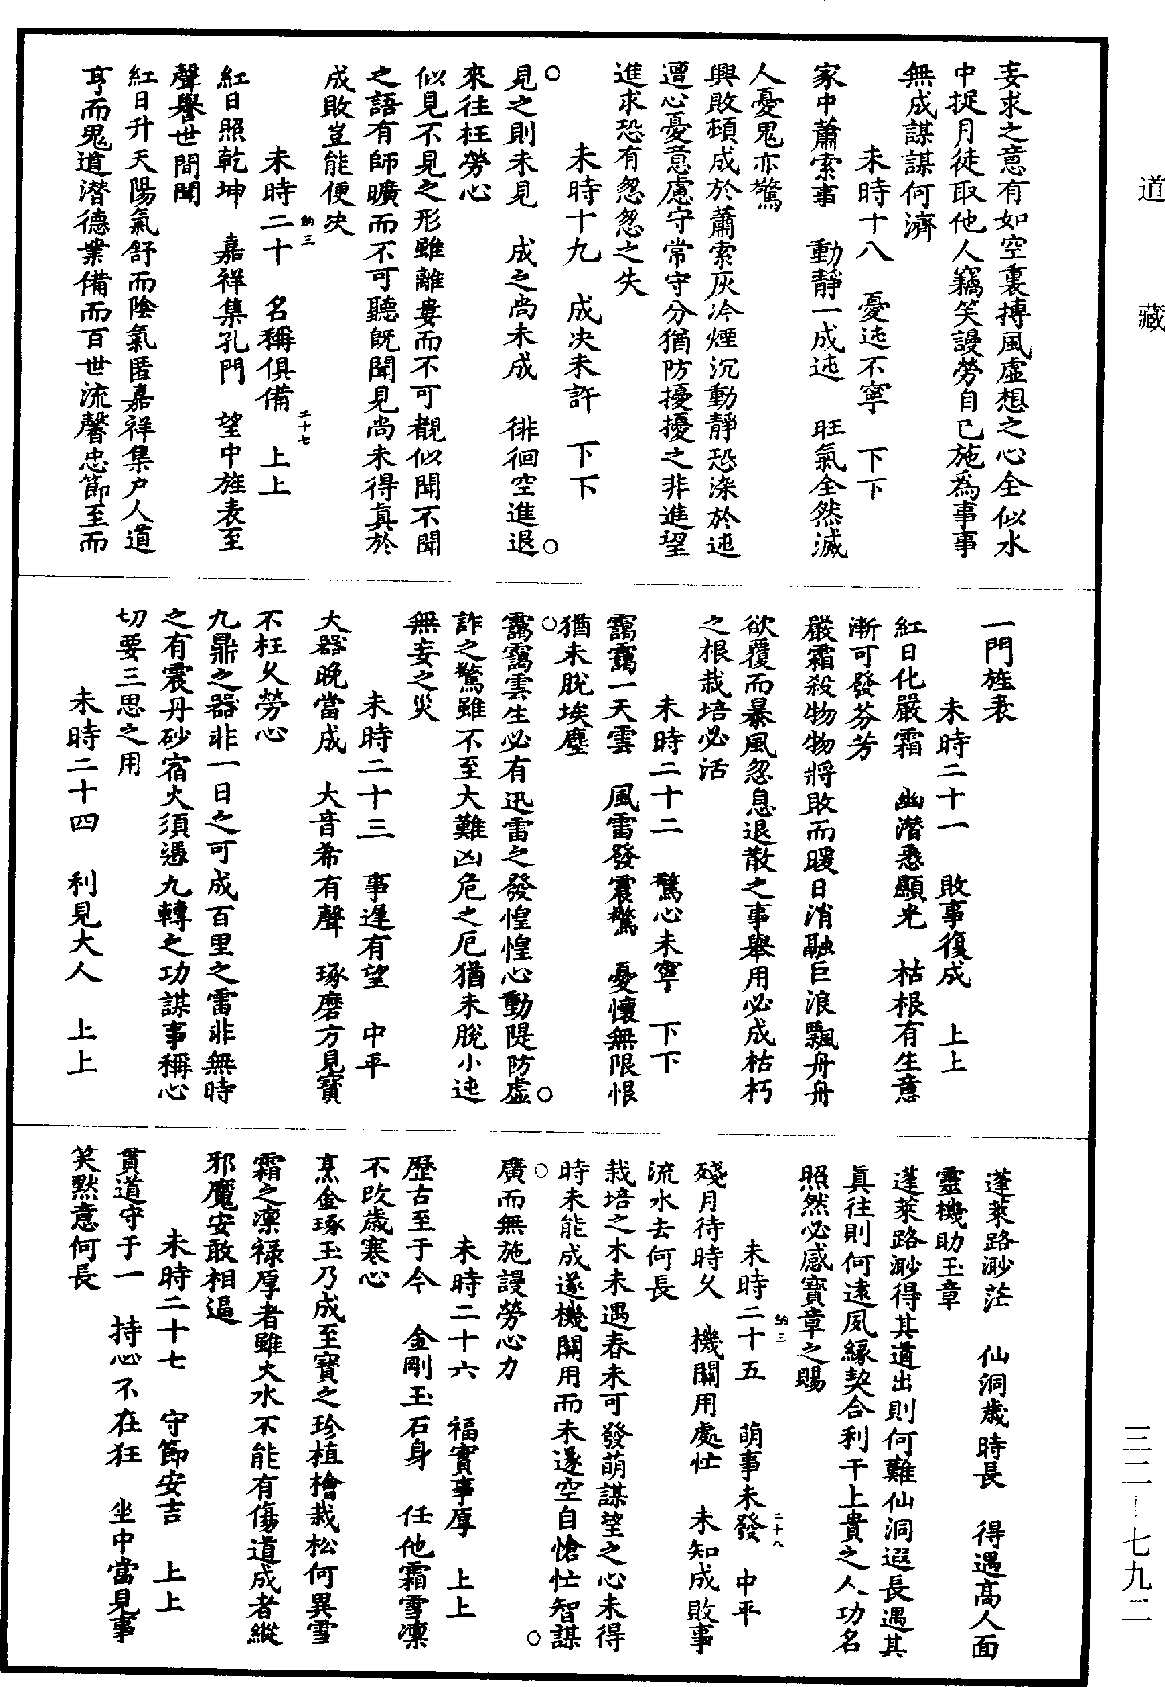 道藏
妄求之意有如空裏搏風虛想之心全似水
中捉月徒取他人竊笑謾勞自已施為事事
無成謀謀何濟
未時十八　憂迍不寧　下下
家中蕭索事　動靜一成迍　旺氣全然滅
人憂鬼亦驚
興敗頓成於蕭索灰冷煙沉動靜恐染於迍
邅心憂意慮守常守分猶防擾擾之非進望
進求恐有忽忽之失
未時十九　成決未許　下下
見之則未見　成之尚未成　徘徊空進退
來往枉勞心
似見不見之形雖離婁而不可覩似聞不聞
之語有師曠而不可聽旣聞見尚未得真於
成敗豈能便決
未時二十　名稱俱備　上上
納三
二十七
紅日照乾坤　嘉祥集孔門　望中旌表至
聲譽世間聞
紅日升天陽氣舒而陰氣匿嘉祥集户人道
亨而鬼道潛德業備而百世流馨忠節至而
一門旌表
未時二十一　敗事復成　上上
紅日化嚴霜　幽潛悉顯光　枯根有生意
漸可發芬芳
嚴霜殺物物將敗而暖日消融巨浪飄舟舟
欲覆而暴風忽息退散之事舉用必成枯朽
之根栽培必活
未時二十二　驚心未寧　下下
靄靄一天雲　風雷發震驚　憂懷無限恨
猶未脫埃塵
靄靄雲生必有迅雷之發惶惶心動隄防虛
詐之驚雖不至大難凶危之厄猶未脫小迍
無妄之災
未時二十三　事遲有望　中平
大器晚當成　大音希有聲　琢磨方見寶
不枉久勞心
九鼎之器非一日之可成百里之雷非無時
之有震丹砂宿火須憑九轉之功謀事稱心
切要三思之用
未時二十四　利見大人　上上
蓬萊路渺茫　仙洞歲時長　得遇高人面
靈機助玉章
蓬萊路渺得其道出則何難仙洞遐長遇其
真往則何遠夙緣契合利干上貴之人功名
照然必感寶章之賜
未時二十五　萌事未發　中平
納三
二十八
殘月待時久　機關用處忙　未知成敗事
流水去何長
栽培之木未遇春未可發萌謀望之心未得
時未能成遂機關用而未遂空自愴忙智謀
廣而無施謾勞心力
未時二十六　福實事厚　上上
歷古至于今　金剛玉石身　任他霜雪凜
不改歲寒心
烹金琢玉乃成至寶之珍植檜栽松何異雪
霜之凜祿厚者雖火水不能有傷道成者縱
邪魔安敢相逼
未時二十七　守節安吉　上上
貫道守于一　持心不在狂　坐中當見事
笑默意何長
三二—七九二